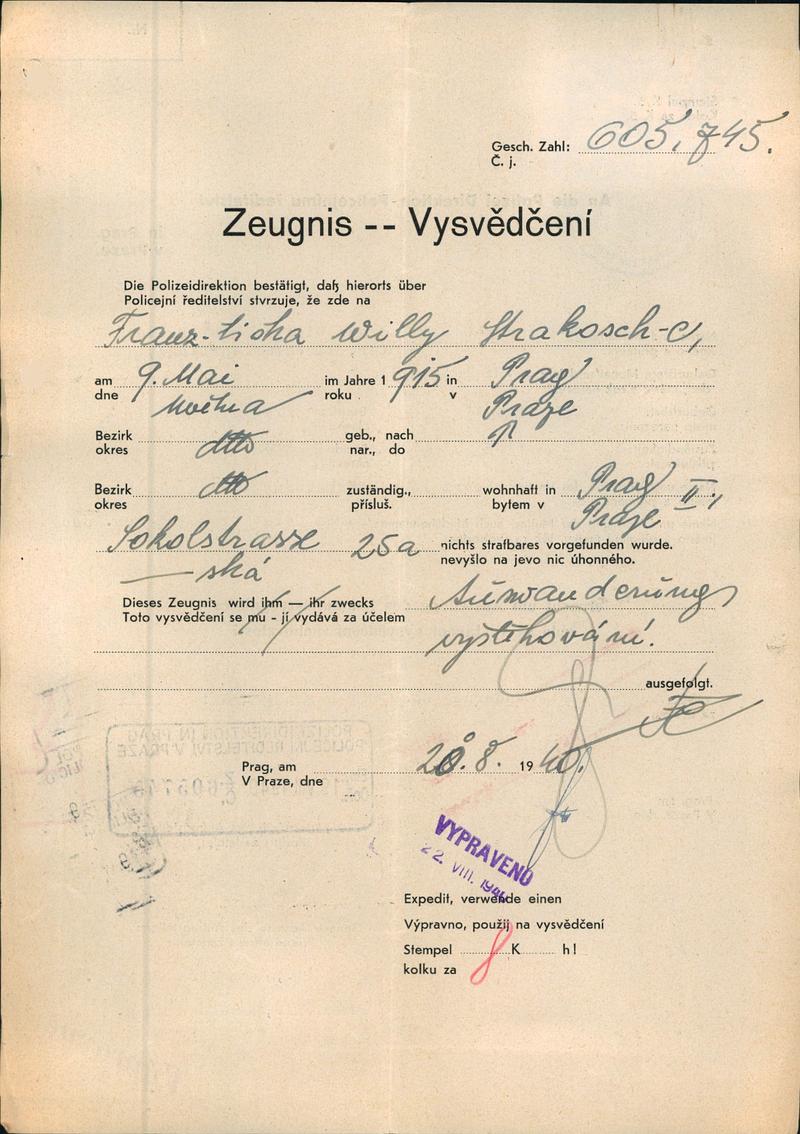 Gesch. Zahl: 605.745.
Č. j.
Zeugnis -- Vysvědčení
Die Polizeidirektion bestätigt, daß hierorts über
Policejní ředitelství stvrzuje, že zde na
Franz-tiska Willy Strakosch-C,
am 9. Mai im Jahre 1 915 in Prag
dne května roku v Praze
Bezirk dtto geb., nach
okres nar., do
Bezirk dtto zuständig., wohnhaft in Prag II.,
okres přísluš. bytem v Praze
Sokolstrasse 25a nichts strafbares vorgefunden wurde.
— ská nevyšlo na jevo nic úhonného.
Dieses Zeugnis wird ihm — ihr zwecks Auswanderung
Toto vysvědčení se mu - jí vydává za účelem vystěhování.
ausgefolgt.
Prag, am 20. 8. 19 40.
V Praze, dne
VYPRAVENO
22. VIII. 1940
Expedit, verwende einen
Výpravno, použij na vysvědčení
Stempel 8 K h!
kolku za